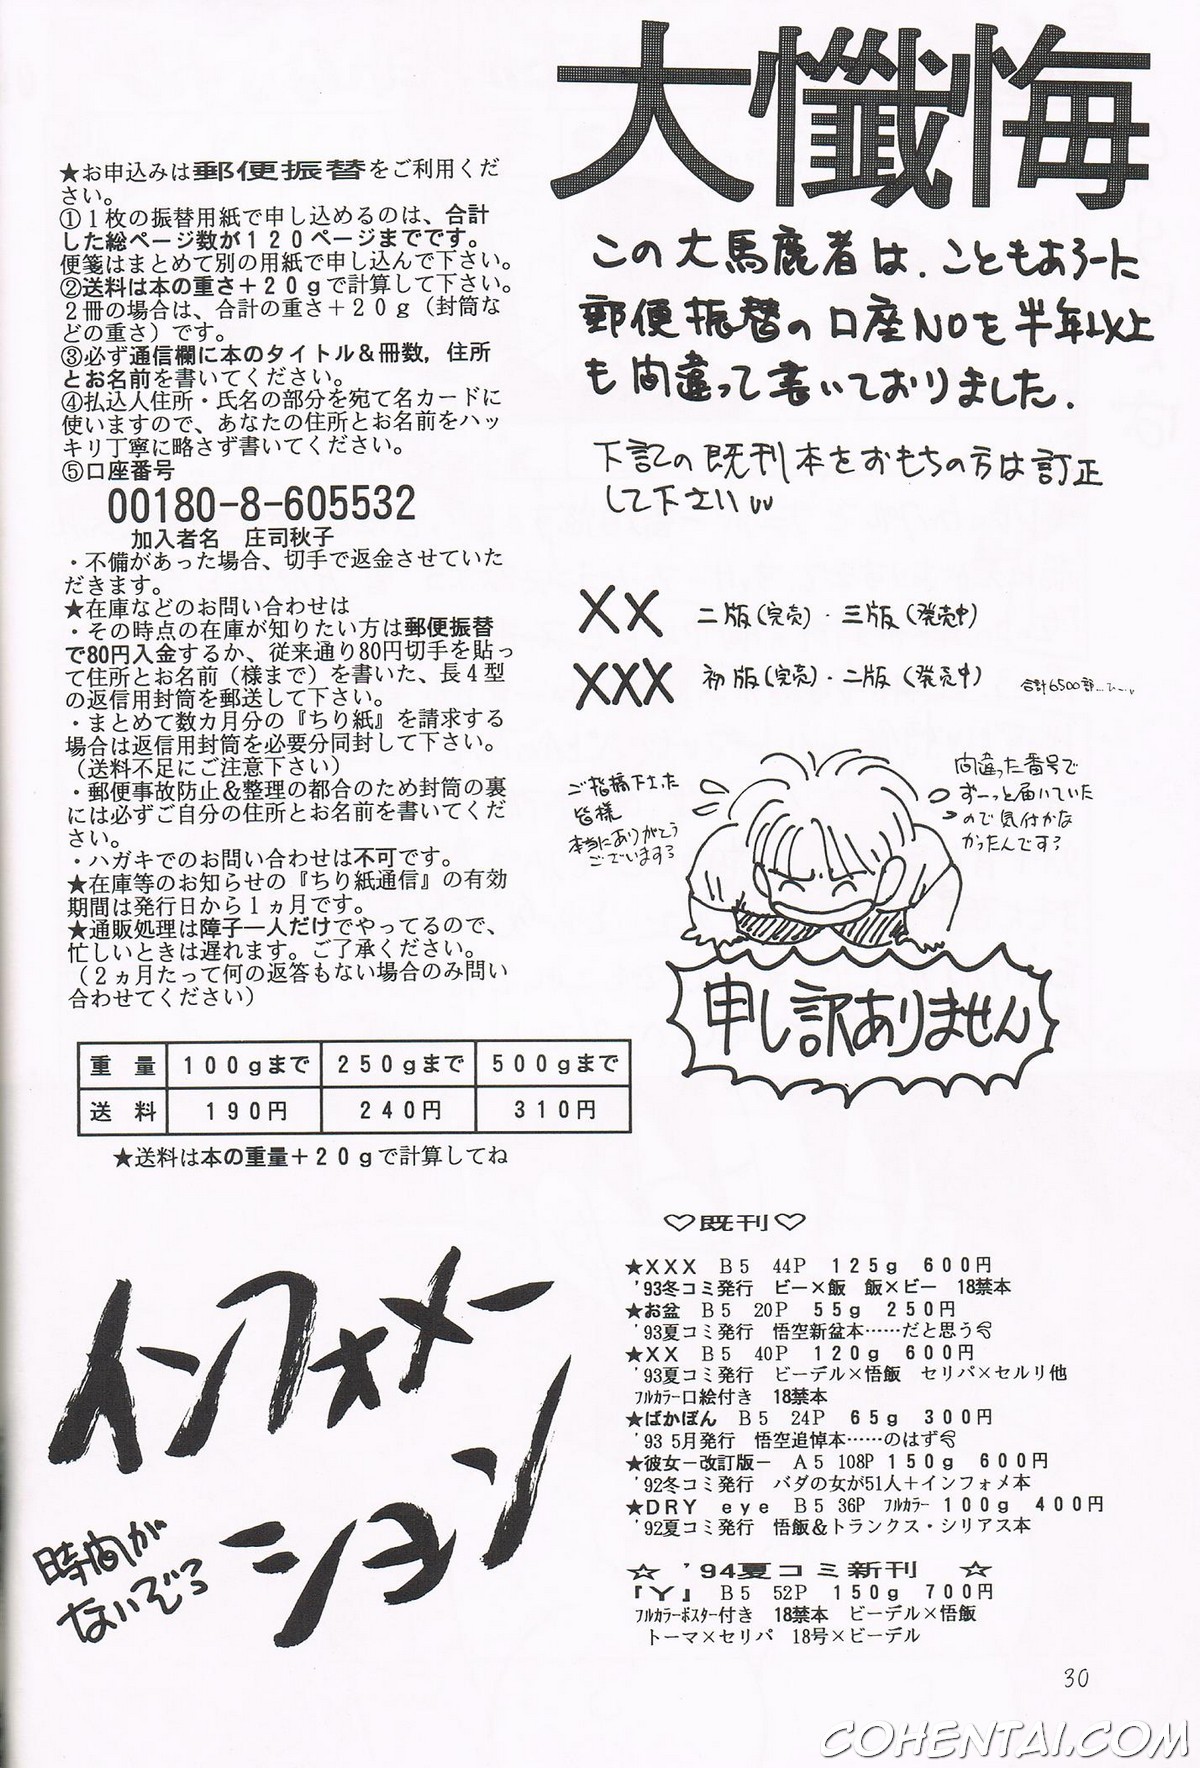 大懺悔
この大馬鹿者は、こともあろーに
郵便振替の口座NOを半年以上
も間違って書いておりました.
下記の既刊本をおもちの方は訂正
して下さい
XX 二版(完売)・三版(発売中)
XXX 初版(完売)・二版(発売中) 合計6500部…
ご指摘下さった
皆様
本当にありがとう
ございます
間違った番号で
ずーっと届いていた
ので気付かな
かったんです
申し訳ありません
★お申込みは郵便振替をご利用くだ
さい。
①1枚の振替用紙で申し込めるのは、合計
した総ページ数が120ページまでです。
便箋はまとめて別の用紙で申し込んで下さい。
②送料は本の重さ+20gで計算して下さい。
2冊の場合は、合計の重さ+20g(封筒な
どの重さ)です。
③必ず通信欄に本のタイトル&冊数,住所
とお名前を書いてください。
④払込人住所・氏名の部分を宛て名カードに
使いますので、あなたの住所とお名前をハッ
キリ丁寧に略さず書いてください。
⑤口座番号
00180-8-605532
加入者名 庄司秋子
・不備があった場合、切手で返金させていた
だきます。
★在庫などのお問い合わせは
・その時点の在庫が知りたい方は郵便振替
で80円入金するか、従来通り80円切手を貼っ
て住所とお名前(様まで)を書いた、長4型
の返信用封筒を郵送して下さい。
・まとめて数ヵ月分の『ちり紙』を請求する
場合は返信用封筒を必要分同封して下さい。
(送料不足にご注意下さい)
・郵便事故防止&整理の都合のため封筒の裏
には必ずご自分の住所とお名前を書いてくだ
さい。
・ハガキでのお問い合わせは不可です。
★在庫等のお知らせの『ちり紙通信』の有効
期間は発行日から1ヵ月です。
★通販処理は障子一人だけでやってるので、
忙しいときは遅れます。ご了承ください。
(2ヵ月たって何の返答もない場合のみ問い
合わせてください)
重 量 100gまで 250gまで 500gまで
送 料 190円 240円 310円
★送料は本の重量+20gで計算してね
インフォメーション
時間が
ないぞっ
♡既刊♡
★XXX B5 44P 125g 600円
'93冬コミ発行 ビー×飯 飯×ビー 18禁本
★お盆 B5 20P 55g 250円
'93夏コミ発行 悟空新盆本……だと思う
★XX B5 40P 120g 600円
'93夏コミ発行 ビーデル×悟飯 セリパ×セルリ他
フルカラー口絵付き 18禁本
★ばかぼん B5 24P 65g 300円
'93 5月発行 悟空追悼本……のはず
★彼女-改訂版- A5 108P 150g 600円
'92冬コミ発行 バダの女が51人+インフォメ本
★DRY eye B5 36P フルカラー 100g 400円
'92夏コミ発行 悟飯&トランクス・シリアス本
☆ '94夏コミ新刊 ☆
『Y』 B5 52P 150g 700円
フルカラーポスター付き 18禁本 ビーデル×悟飯
トーマ×セリパ 18号×ビーデル
30
COHENTAI.COM